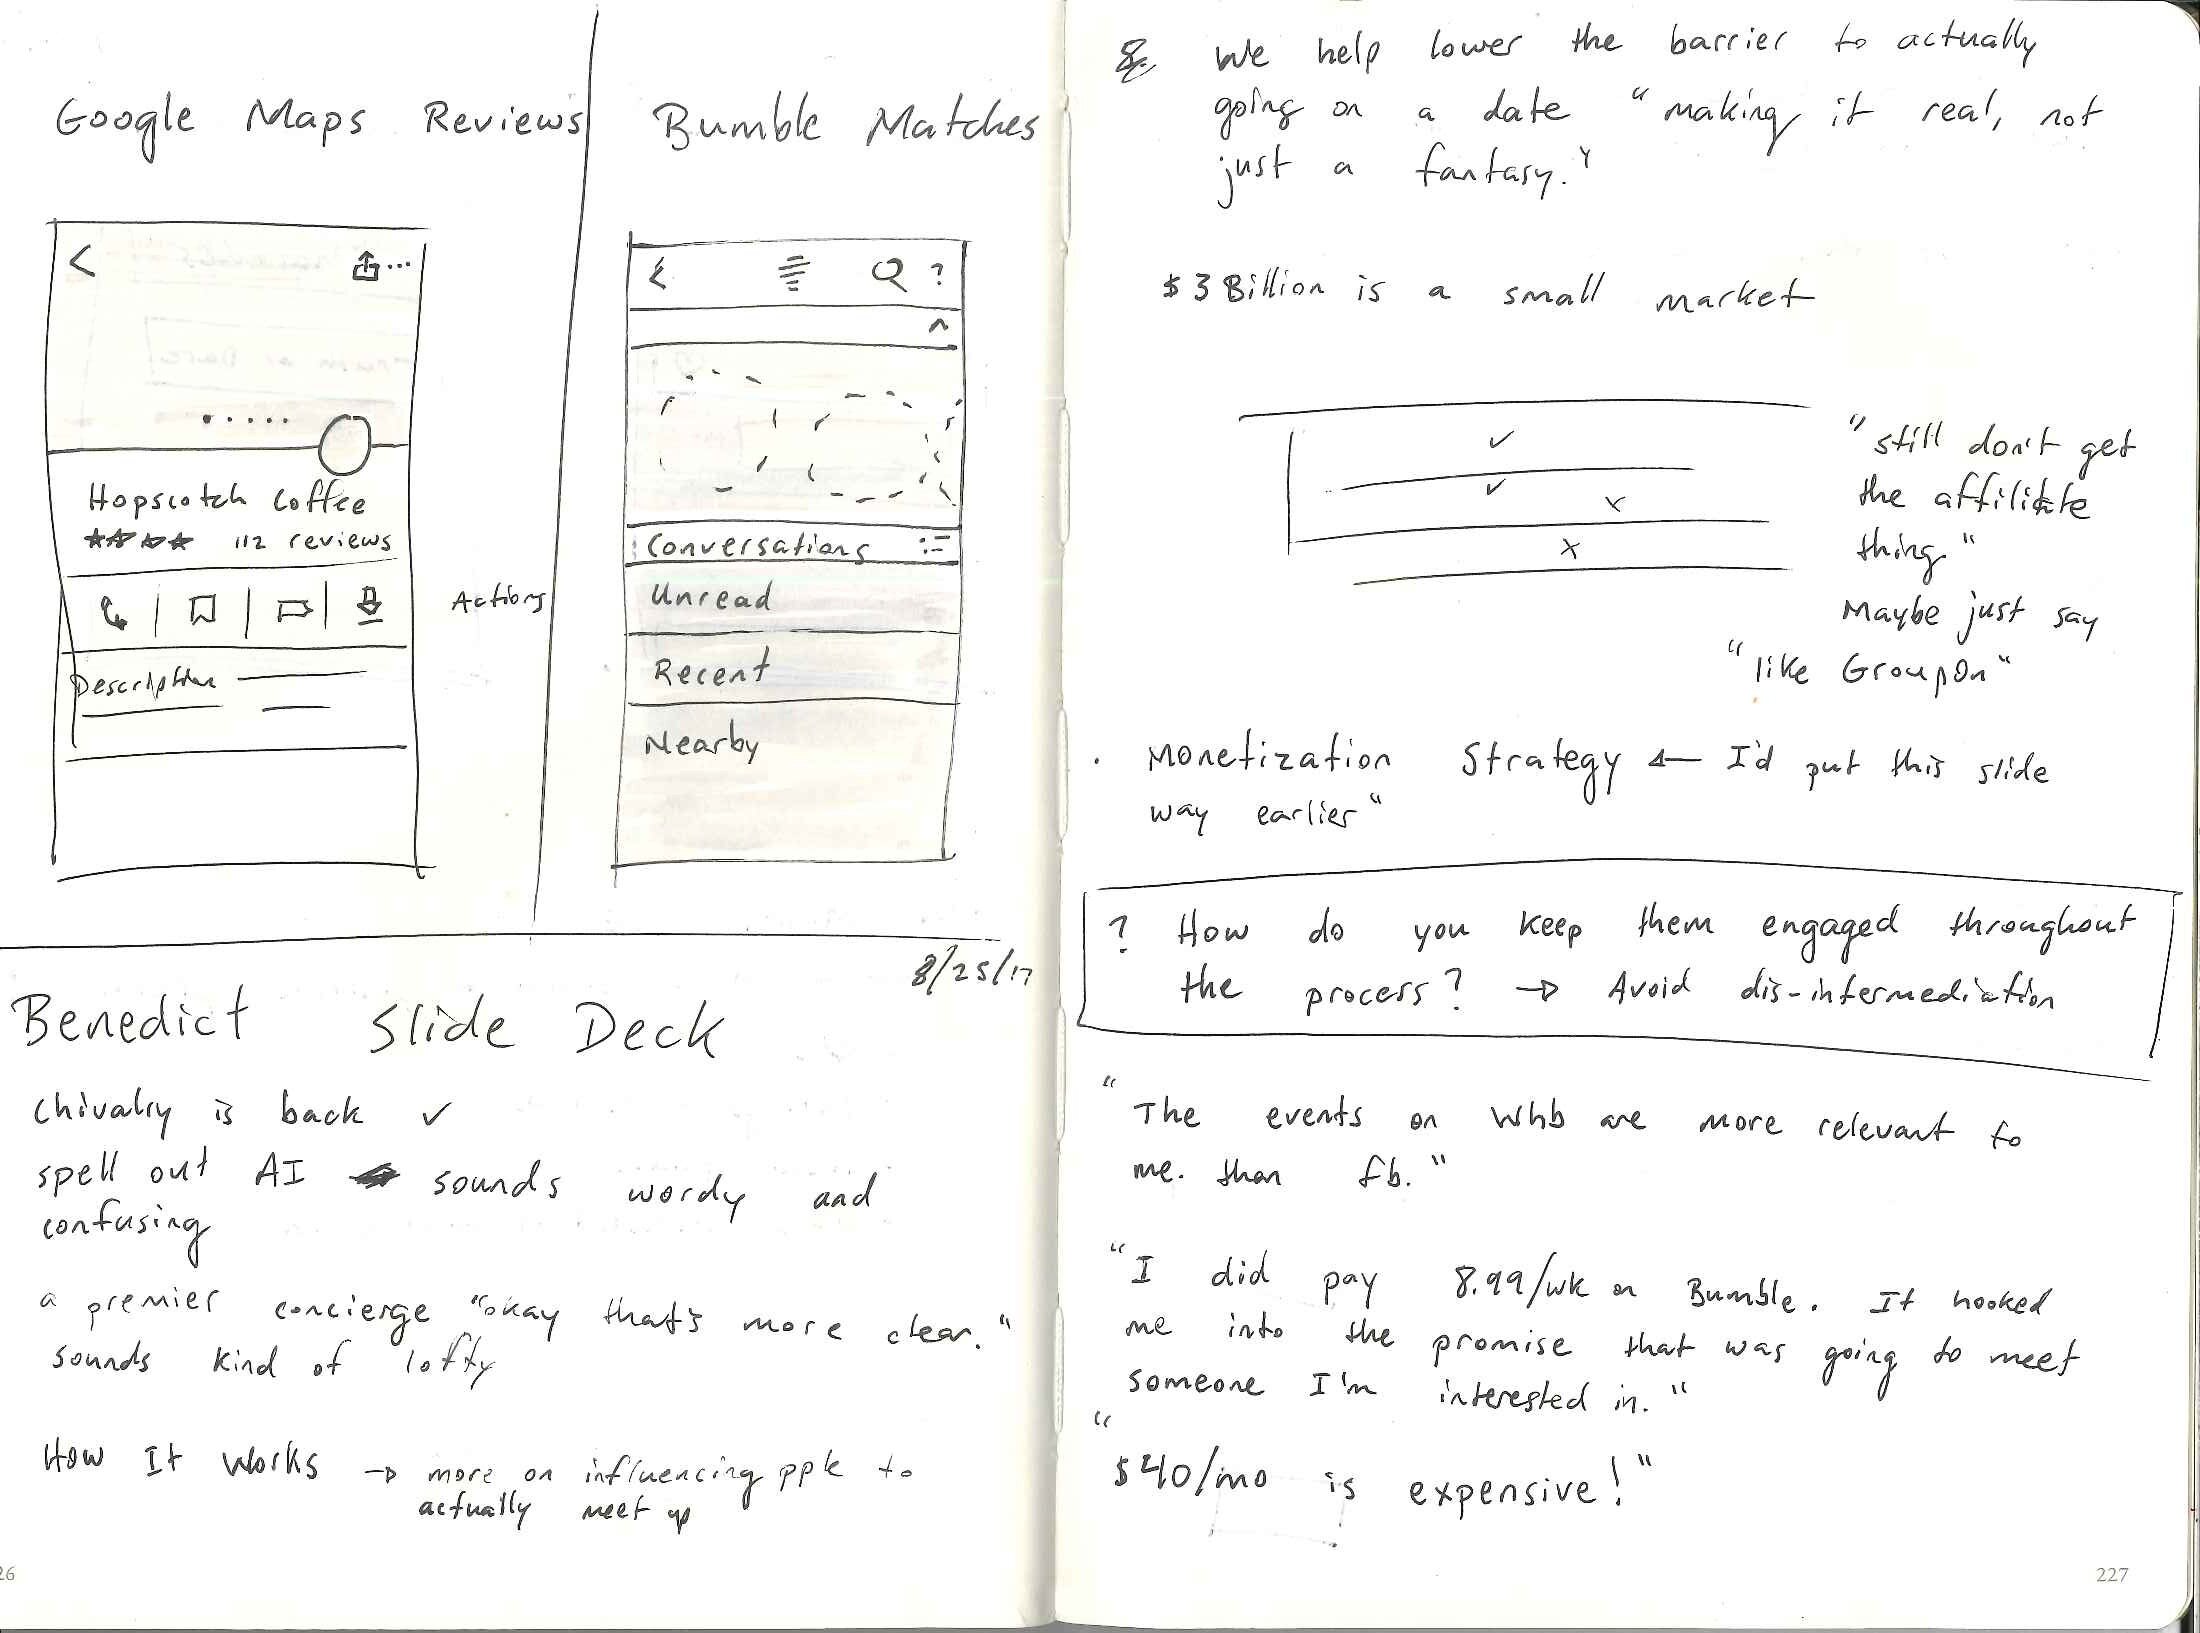 Google Maps Reviews
Hopscotch Coffee
112 reviews
Actions
Description
Bumble Matches
?
Conversations
Unread
Recent
Nearby
8/25/17
Benedict Slide Deck
Chivalry is back ✓
spell out AI sounds wordy and
confusing
a premier concierge "okay that's more clear."
sounds kind of lofty
How It Works → more on influencing ppl to
actually meet up
26
We help lower the barrier to actually
going on a date "making it real, not
just a fantasy."
$3 Billion is a small market
"still don't get
the affiliate
thing"
Maybe just say
"like GroupOn"
· Monetization Strategy ← I'd put this slide
way earlier"
? How do you keep them engaged throughout
the process? → Avoid dis-intermediation
"The events on Whb are more relevant to
me. than fb."
"I did pay 8.99/wk on Bumble. It hooked
me into the promise that was going to meet
someone I'm interested in."
"$40/mo is expensive!"
227